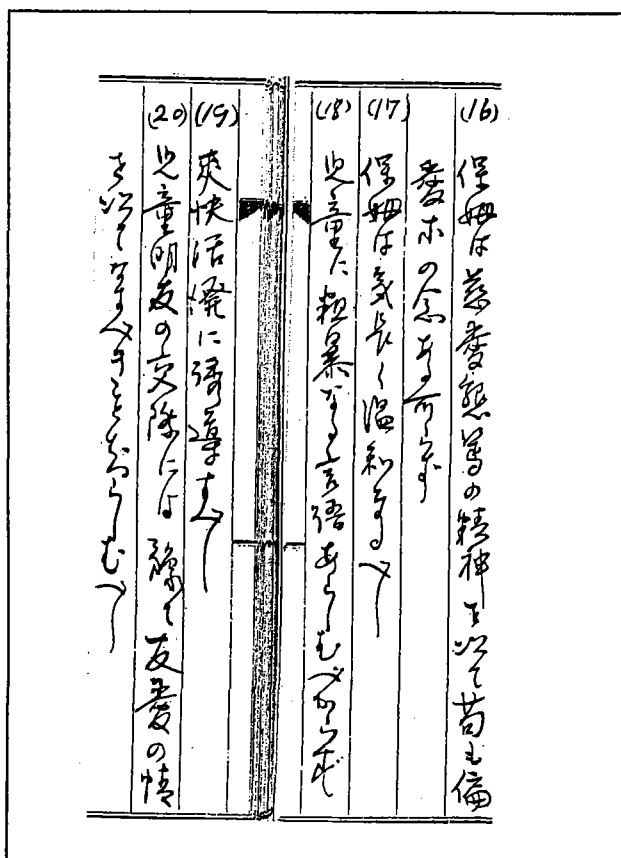 (16) 保姆は慈愛懇篤の精神を以て苟も偏
愛ホの念ある可らず
(17) 保姆は気長く温和なるべし
(18) 児童に粗暴なる言語あらしむべからず
(19) 爽快活溌に誘導すべし
(20) 児童朋友の交際には 縁て友愛の情
を以てなすべきことをしらしむべし